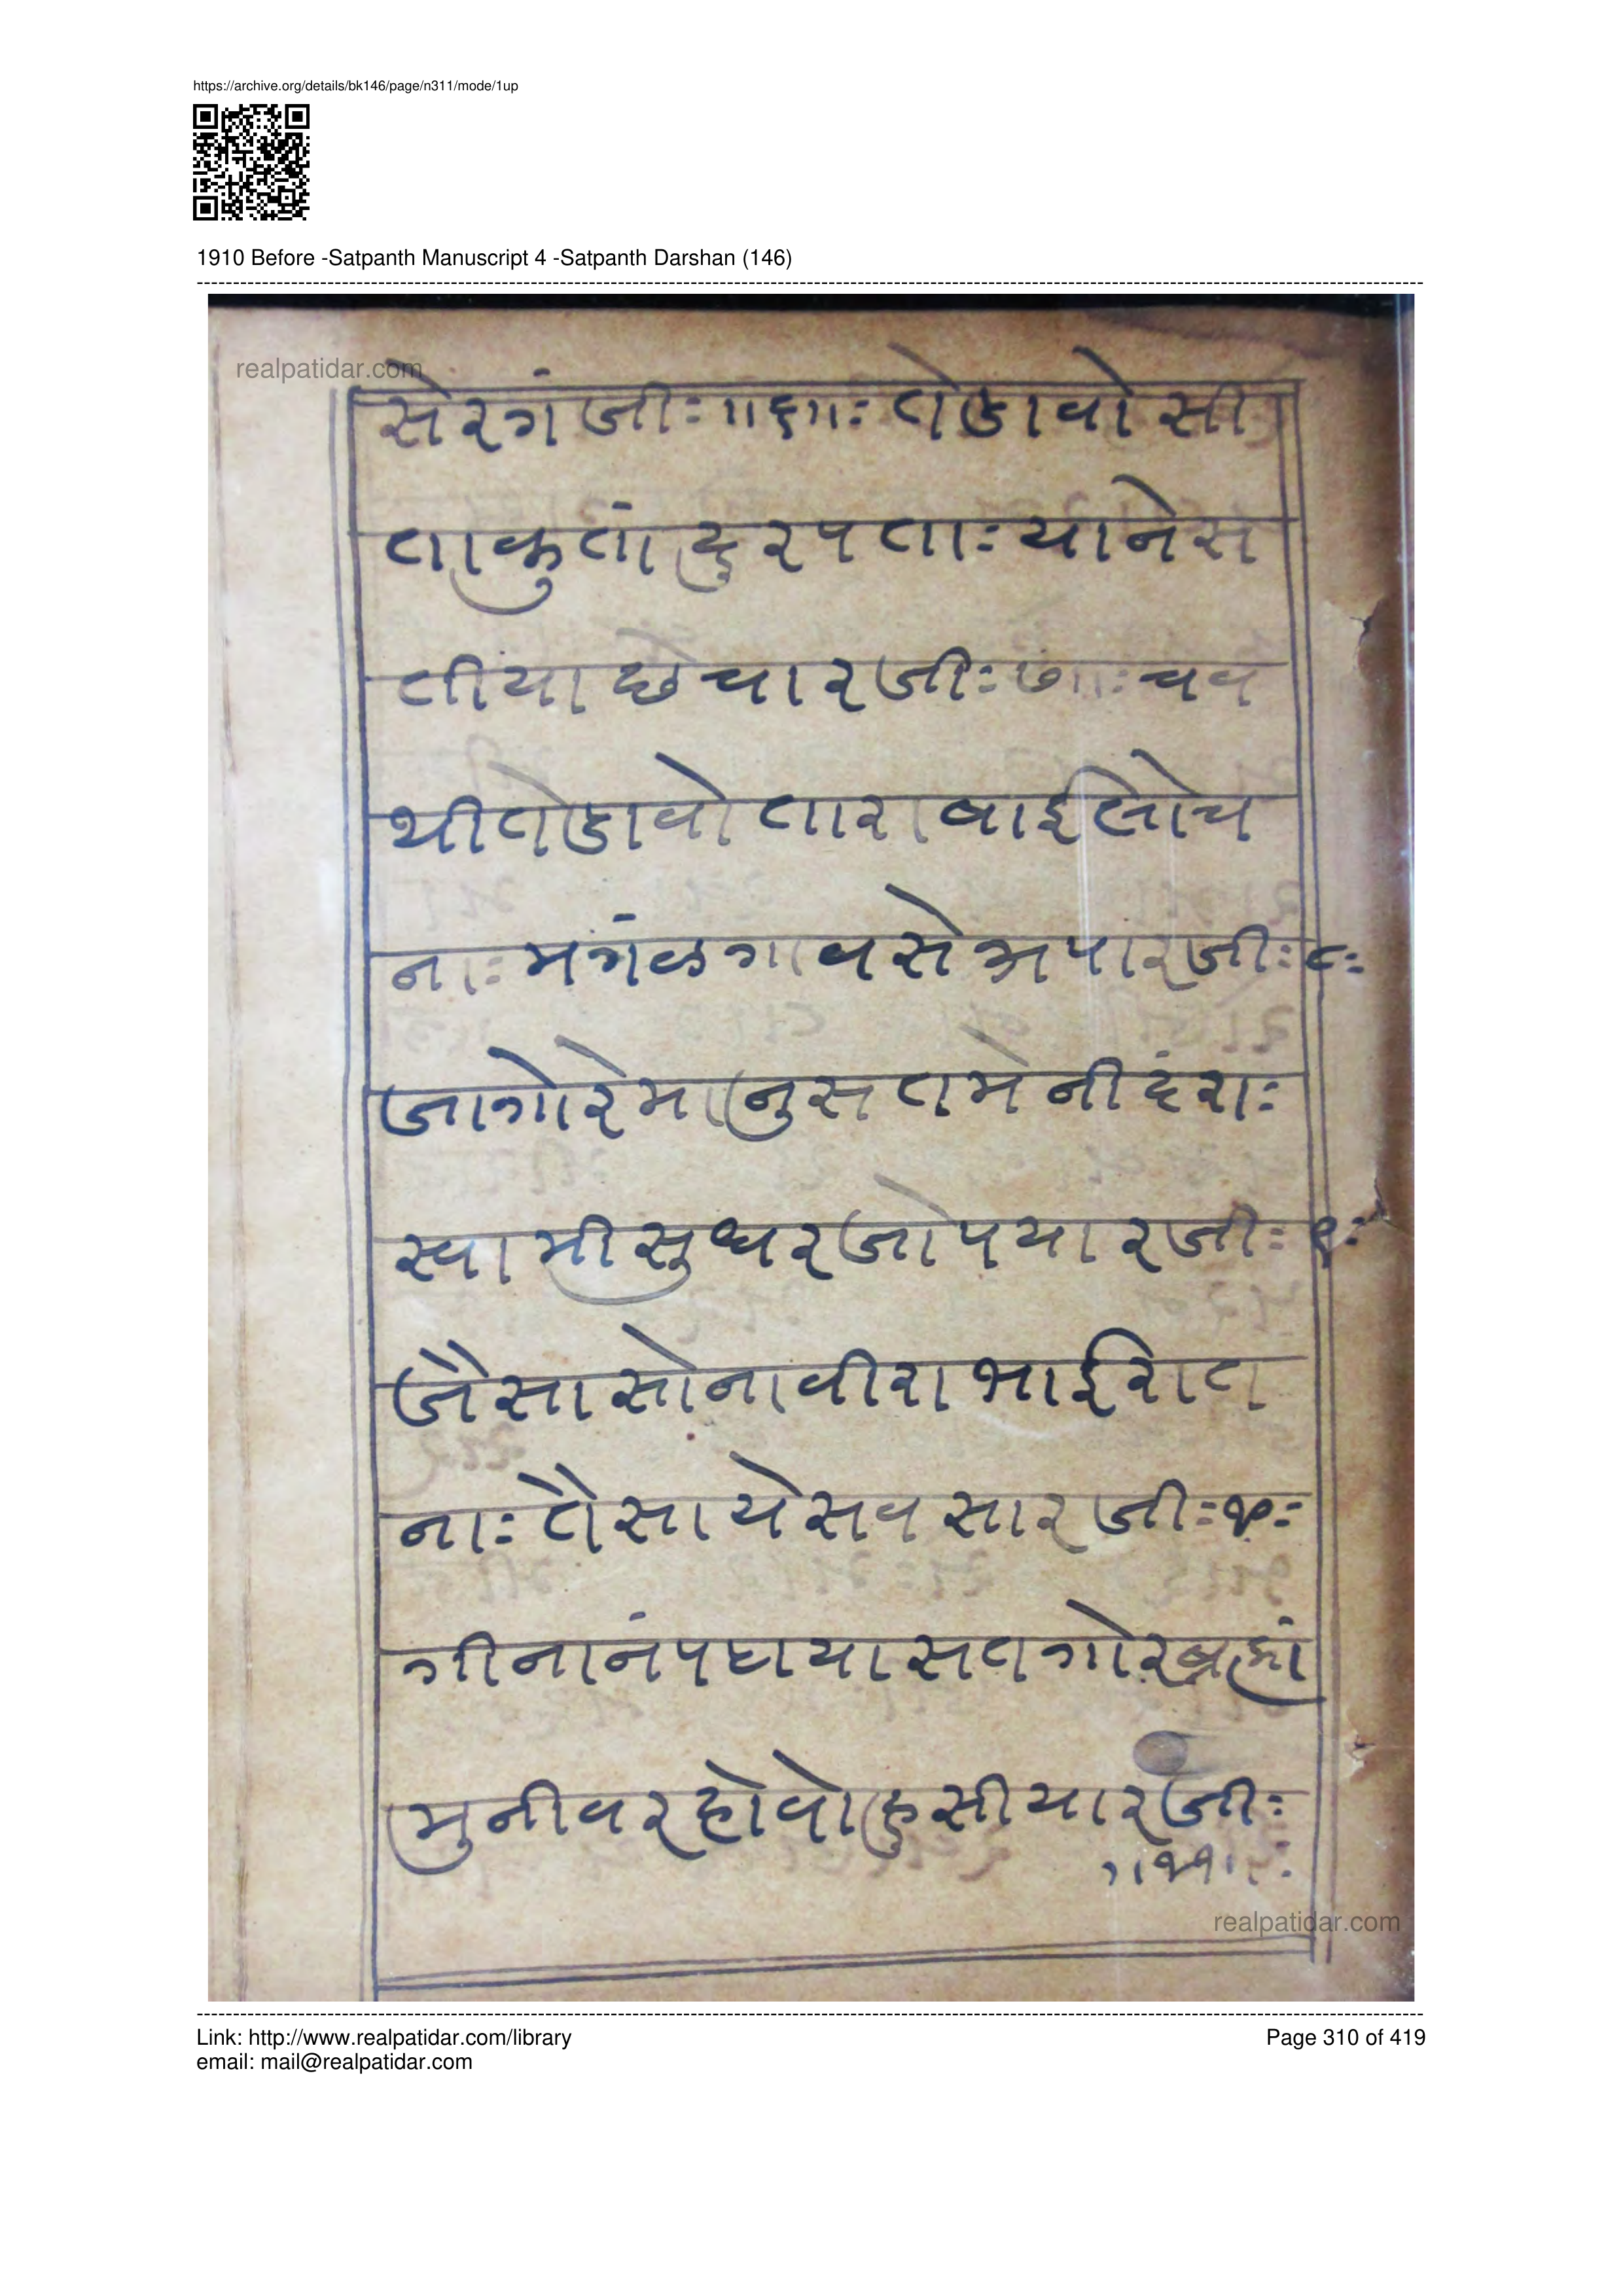 https://archive.org/details/bk146/page/n311/mode/1up
1910 Before -Satpanth Manuscript 4 -Satpanth Darshan (146)
realpatidar.com
सेरगं जीः ॥६॥ः तेडावो सी
ता कुतां दुरपताः यानेस
तीया छे चार जीः ७॥ः चव
थी तेडावो तारा बाई लोच
नाः मगंळ गावसे अपार जीः ८ः
जागो रे मानुस तमे नीदंराः
स्वामी सुधर जो पयार जीः ९ः
जैसा सोना वीरा भाई रात
नाः तैसा ये सव सार जीः १०ः
गीनानं पढाया सतगोर ब्रह्मां
मुनीवर होवो हुसीयार जीः
॥११॥ः
realpatidar.com
Link: http://www.realpatidar.com/library
Page 310 of 419
email: mail@realpatidar.com